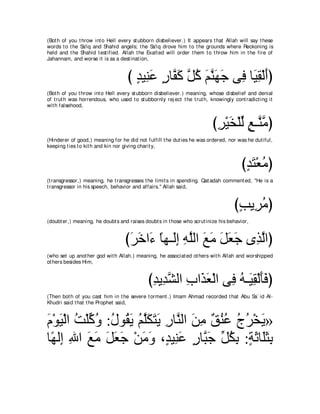 (Both of you throw into Hell every stubborn disbeliever.) It appears that Allah will say these
words to the Sa'iq and Shahid angels; the Sa'iq drove him to the grounds where Reckoning is
held and the Shahid testified. Allah the Exalted will order them to throw him in the fire of
Jahannam, and worse it is as a destination,
(أَلْقِيَا فِى جَهَنَّمَ كُلَّ كَفَّارٍ عَنِيدٍ )
(Both of you throw into Hell every stubborn disbeliever.) meaning, whose disbelief and denial
of truth was horrendous, who used to stubbornly reject the truth, knowingly contradicting it
with falsehood,
(مَّنَّـعٍ لِّلْخَيْرِ)
(Hinderer of good,) meaning for he did not fulfill the duties he was ordered, nor was he dutiful,
keeping ties to kith and kin nor giving charity,
(مُعْتَدٍ)
(transgressor,) meaning, he transgresses the limits in spending. Qatadah commented, "He is a
transgressor in his speech, behavior and affairs." Allah said,
(مُرِيبٍ)
(doubter,) meaning, he doubts and raises doubts in those who scrutinize his behavior,
(الَّذِى جَعَلَ مَعَ اللَّهِ إِلَـهاً ءَاخَرَ)
(who set up another god with Allah.) meaning, he associated others with Allah and worshipped
others besides Him,
(فَأَلْقِيَـهُ فِى الْعَذَابِ الشَّدِيدِ)
(Then both of you cast him in the severe torment.) Imam Ahmad recorded that Abu Sa`id Al-
Khudri said that the Prophet said,
«يَخْرُجُ عُنُقٌ مِنَ النَّارِ يَتَكَلَّمُ يَقُولُ: وُكِّلْتُ الْيَوْمَ
بِثَلَاثَةٍ: بِكُلِّ جَبَّارٍ عَنِيدٍ، وَمَنْ جَعَلَ مَعَ اللهِ إِلهًا